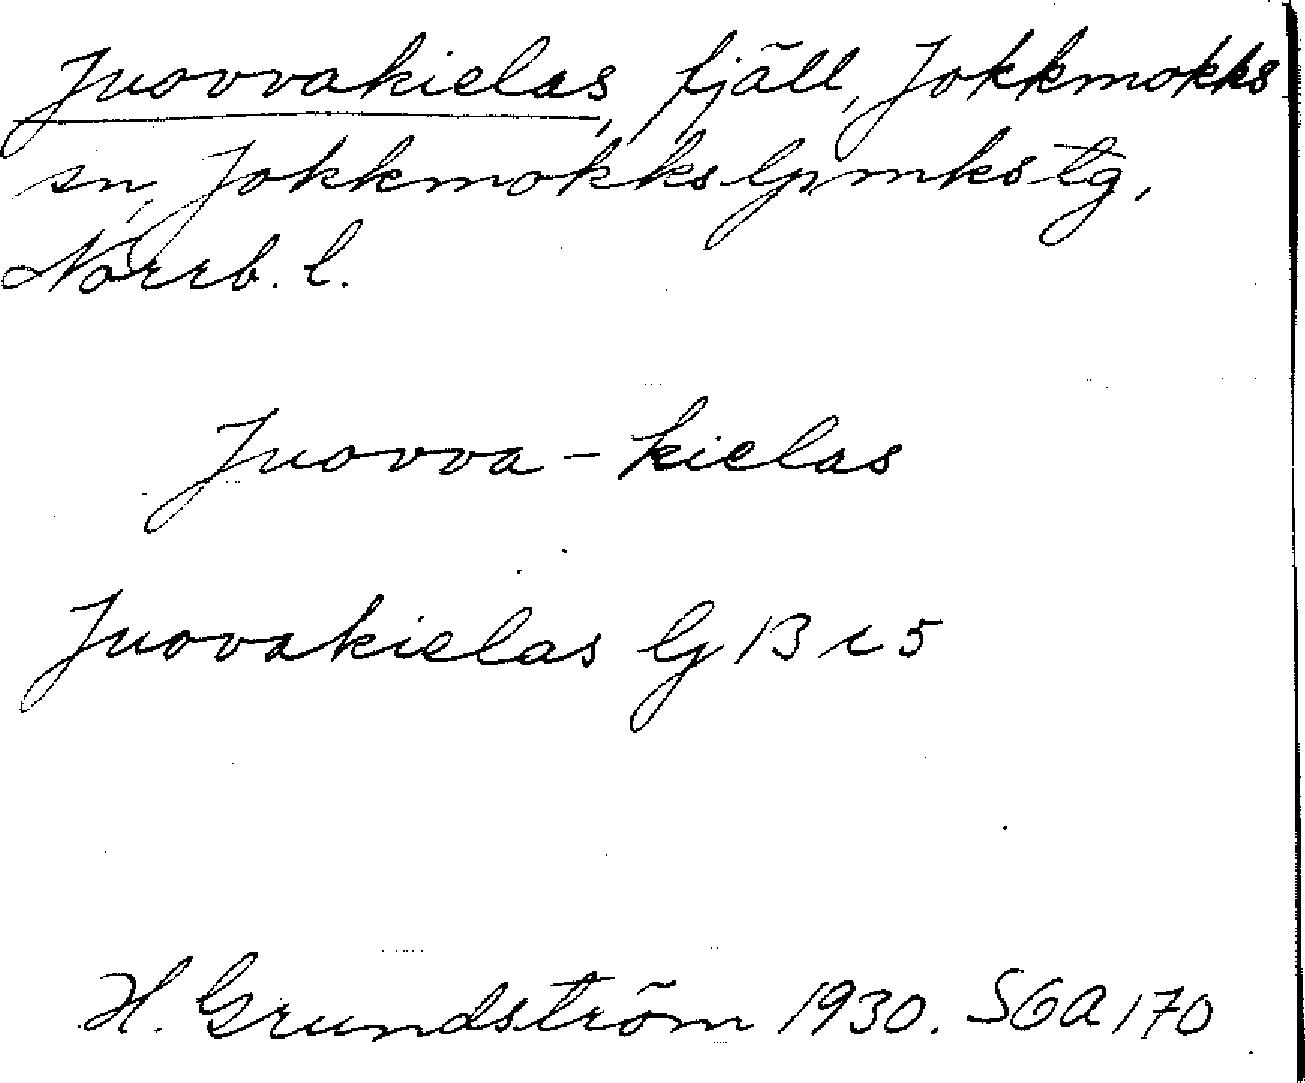 Juovvakielas, fjäll, Jokkmokks
sn, Jokkmokks lpmkstg,
Norrb. l.
Juovva - kielas
Juovakielas Gj 13 c 5
H. Grundström 1930. SGA 170